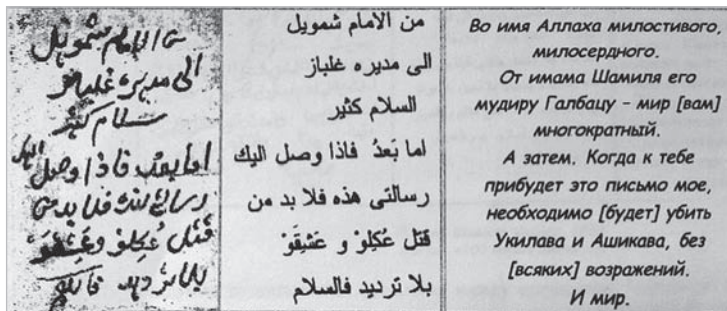 من الامام شمويل
الى مديره غلباز
سلام كثير
اما بعد فاذا وصل اليك
رسالتى هذه فلا بد من
قتل عُكِلَوْ و عَشِقَوْ
بلا ترديد فالسلام
من الامام شمويل
الى مديره غلباز
السلام كثير
اما بَعدُ فاذا وصل اليك
رسالتى هذه فلا بد من
قتل عُكِلَوْ و عَشِقَوْ
بلا ترديد فالسلام
Во имя Аллаха милостивого,
милосердного.
От имама Шамиля его
мудиру Галбацу – мир [вам]
многократный.
А затем. Когда к тебе
прибудет это письмо мое,
необходимо [будет] убить
Укилава и Ашикава, без
[всяких] возражений.
И мир.